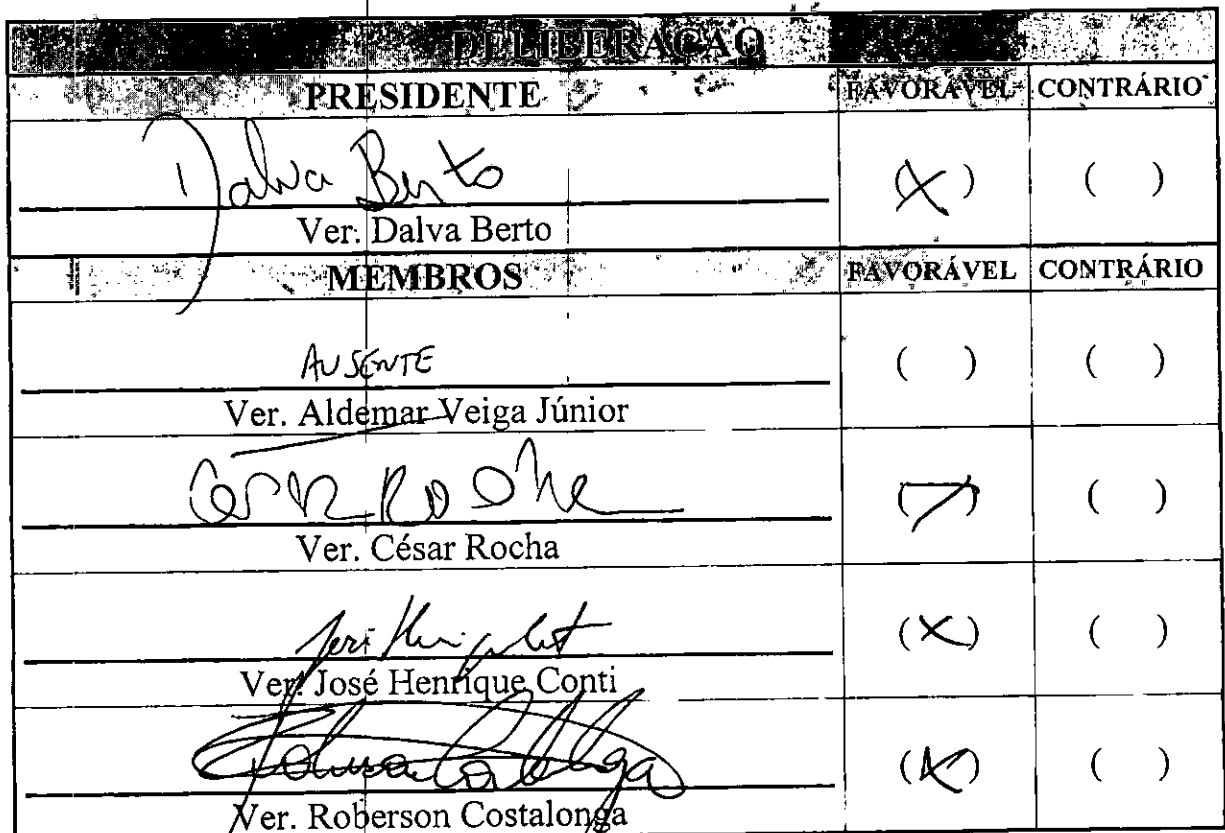 DELIBERAÇÃO
PRESIDENTE FAVORÁVEL CONTRÁRIO
Dalva Berto (X) ( )
Ver. Dalva Berto
MEMBROS FAVORÁVEL CONTRÁRIO
AUSENTE ( ) ( )
Ver. Aldemar Veiga Júnior
Cesar Rocha ( ) ( )
Ver. César Rocha
(X) ( )
Ver. José Henrique Conti
(X) ( )
Ver. Roberson Costalonga